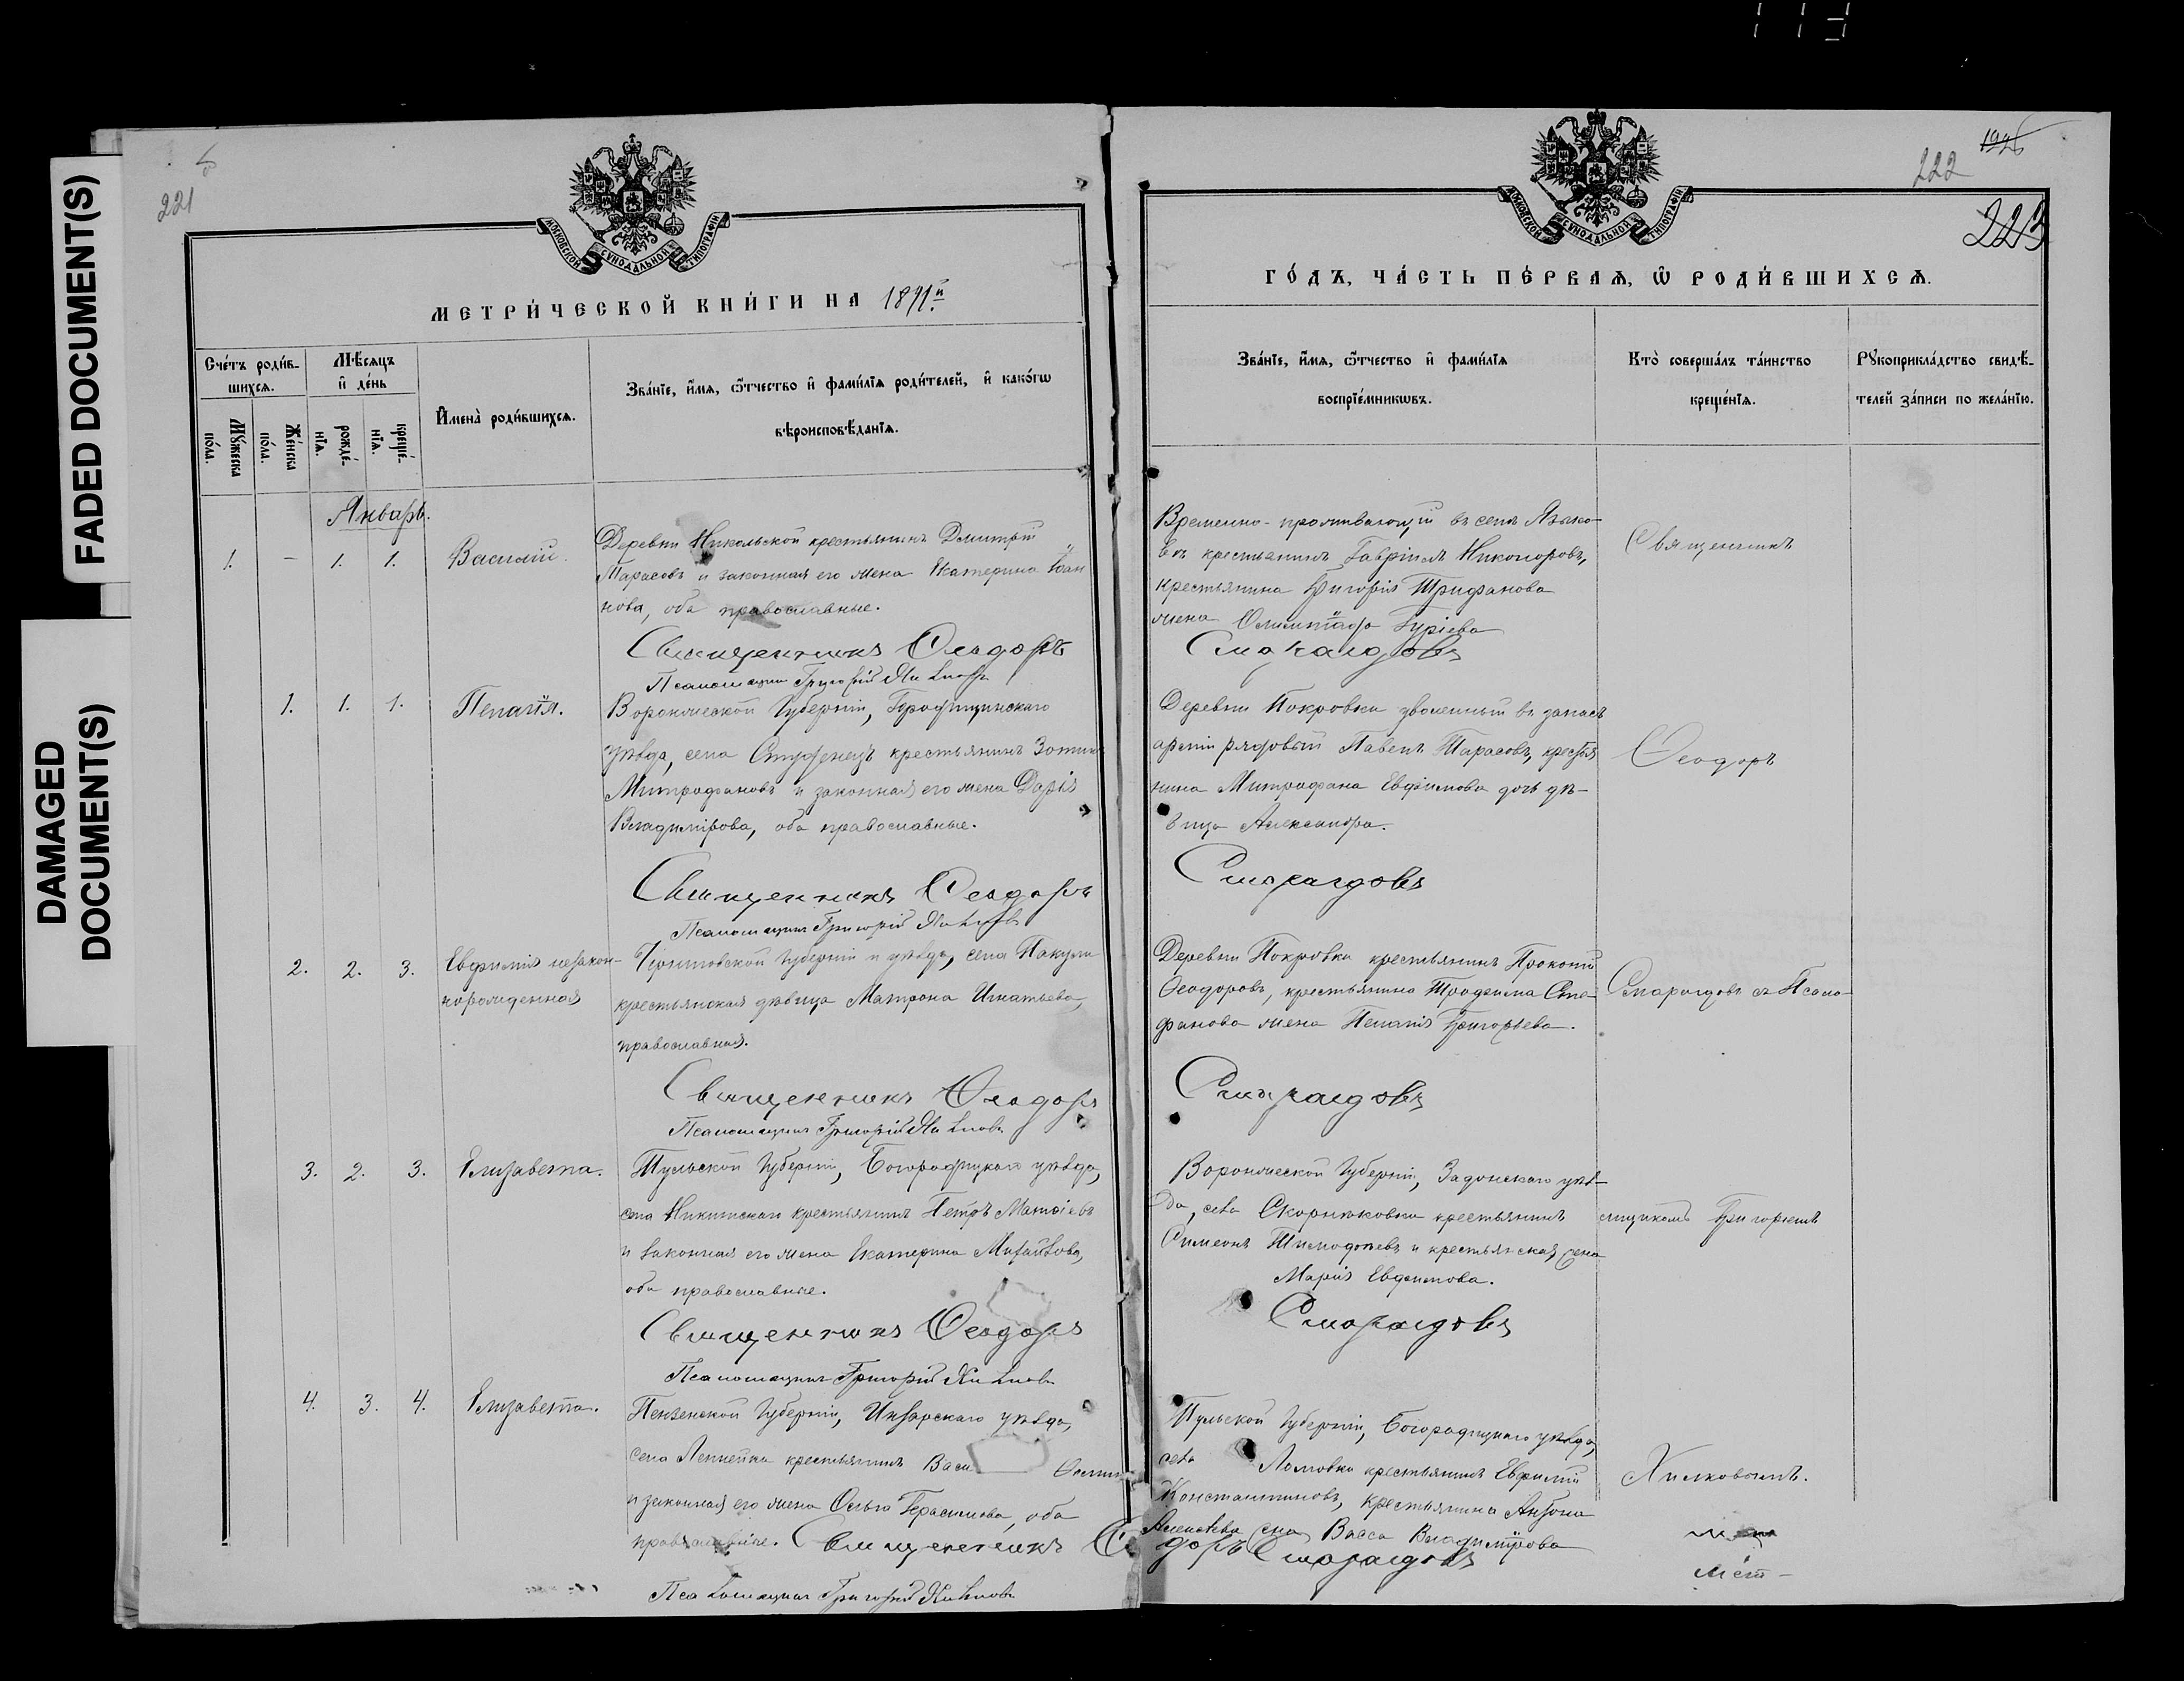 FADED DOCUMENT(S)
DAMAGED
DOCUMENT(S)
221
МОСКОВСКОЙ СѴНОДАЛЬНОЙ ТИПОГРАФІИ
МЕТРИ́ЧЕСКОЙ КНИ́ГИ НА 1891й
Сче́тъ роди́в-
шихсѧ.
Мѣ́сѧцъ
и҆ де́нь
И҆мена̀ роди́вшихсѧ.
Зва́нїе, и҆́мѧ, ѻ҆́тчество и҆ фами́лїѧ роди́телей, и҆ како́гѡ
вѣроисповѣ́данїѧ.
Мꙋ́жеска
по́ла.
Же́нска
по́ла.
рожде́-
нїѧ.
креще́-
нїѧ.
Январь.
1. – 1. 1. Василій.
Деревни Никольской крестьянинъ Димитрій
Тарасовъ и законная его жена Екатерина Іоан
нова, оба православные.
Священникъ Ѳеодоръ
Псаломщикъ Григорій Хилковъ
1. 1. 1. Пелагія.
Воронежской Губерніи,
уѣзда, села Студенецъ крестьянинъ
Митрофановъ и законная его жена Дарія
Владимірова, оба православные.
Священникъ Ѳеодоръ
Псаломщикъ Григорій Хилковъ
2. 2. 3. Евфимія незакон-
норожденная
Черниговской Губерніи и уѣзда, села Пакули
крестьянская дѣвица Матрона Игнатьева,
православная.
Священникъ Ѳеодоръ
Псаломщикъ Григорій Хилковъ
3. 2. 3. Елизавета.
Тульской Губерніи, Богородицкаго уѣзда,
села Никитскаго крестьянинъ Петръ Матѳіевъ
и законная его жена Екатерина Михайлова,
оба православные.
Священникъ Ѳеодоръ
Псаломщикъ Григорій Хилковъ
4. 3. 4. Елизавета.
Пензенской Губерніи, Инсарскаго уѣзда,
села крестьянинъ Васи
и законная его жена Ольга Герасимова, оба
православные. Священникъ Ѳео
Псаломщикъ Григорій Хилковъ
222
223
МОСКОВСКОЙ СѴНОДАЛЬНОЙ ТИПОГРАФІИ
ГО́ДЪ, ЧА́СТЬ ПЕ́РВАѦ, Ѽ РОДИ́ВШИХСѦ.
Зва́нїе, и҆́мѧ, ѻ҆́тчество и҆ фами́лїѧ
воспрїе́мникѡвъ.
Кто̀ соверша́лъ та́инство
креще́нїѧ.
Рꙋкоприкла́дство свидѣ́-
телей за́писи по жела́нїю.
Временно-проживающій въ селѣ Языко-
вѣ крестьянинъ Гавріилъ Никоноровъ,
крестьянина Григорія Трифанова
жена Гуріева
Смарагдовъ
Священникъ
Деревни Покровки уволенный въ запасъ
арміи рядовый Павелъ Тарасовъ, крестья
нина Митрофана Евфимова дочь дѣ-
вица Александра.
Смарагдовъ
Ѳеодоръ
Деревни Покровки крестьянинъ Прокопій
Ѳеодоровъ, крестьянина Трофима Сте-
фанова жена Пелагія Григорьева.
Смарагдовъ
Смарагдовъ съ Псало-
Воронежской Губерніи, Задонскаго уѣз-
да, села Скорняковка крестьянинъ
Симеонъ Тимоѳеевъ и крестьянская жена
Марія Евфимова.
Смарагдовъ
мщикомъ Григоріемъ
Тульской Губерніи, Богородицкаго уѣзда,
села Ломовка крестьянинъ Евфимій
Константиновъ, крестьянина Антона
Алексѣева жена Васса Владимірова
доръ Смарагдовъ
Хилковымъ.